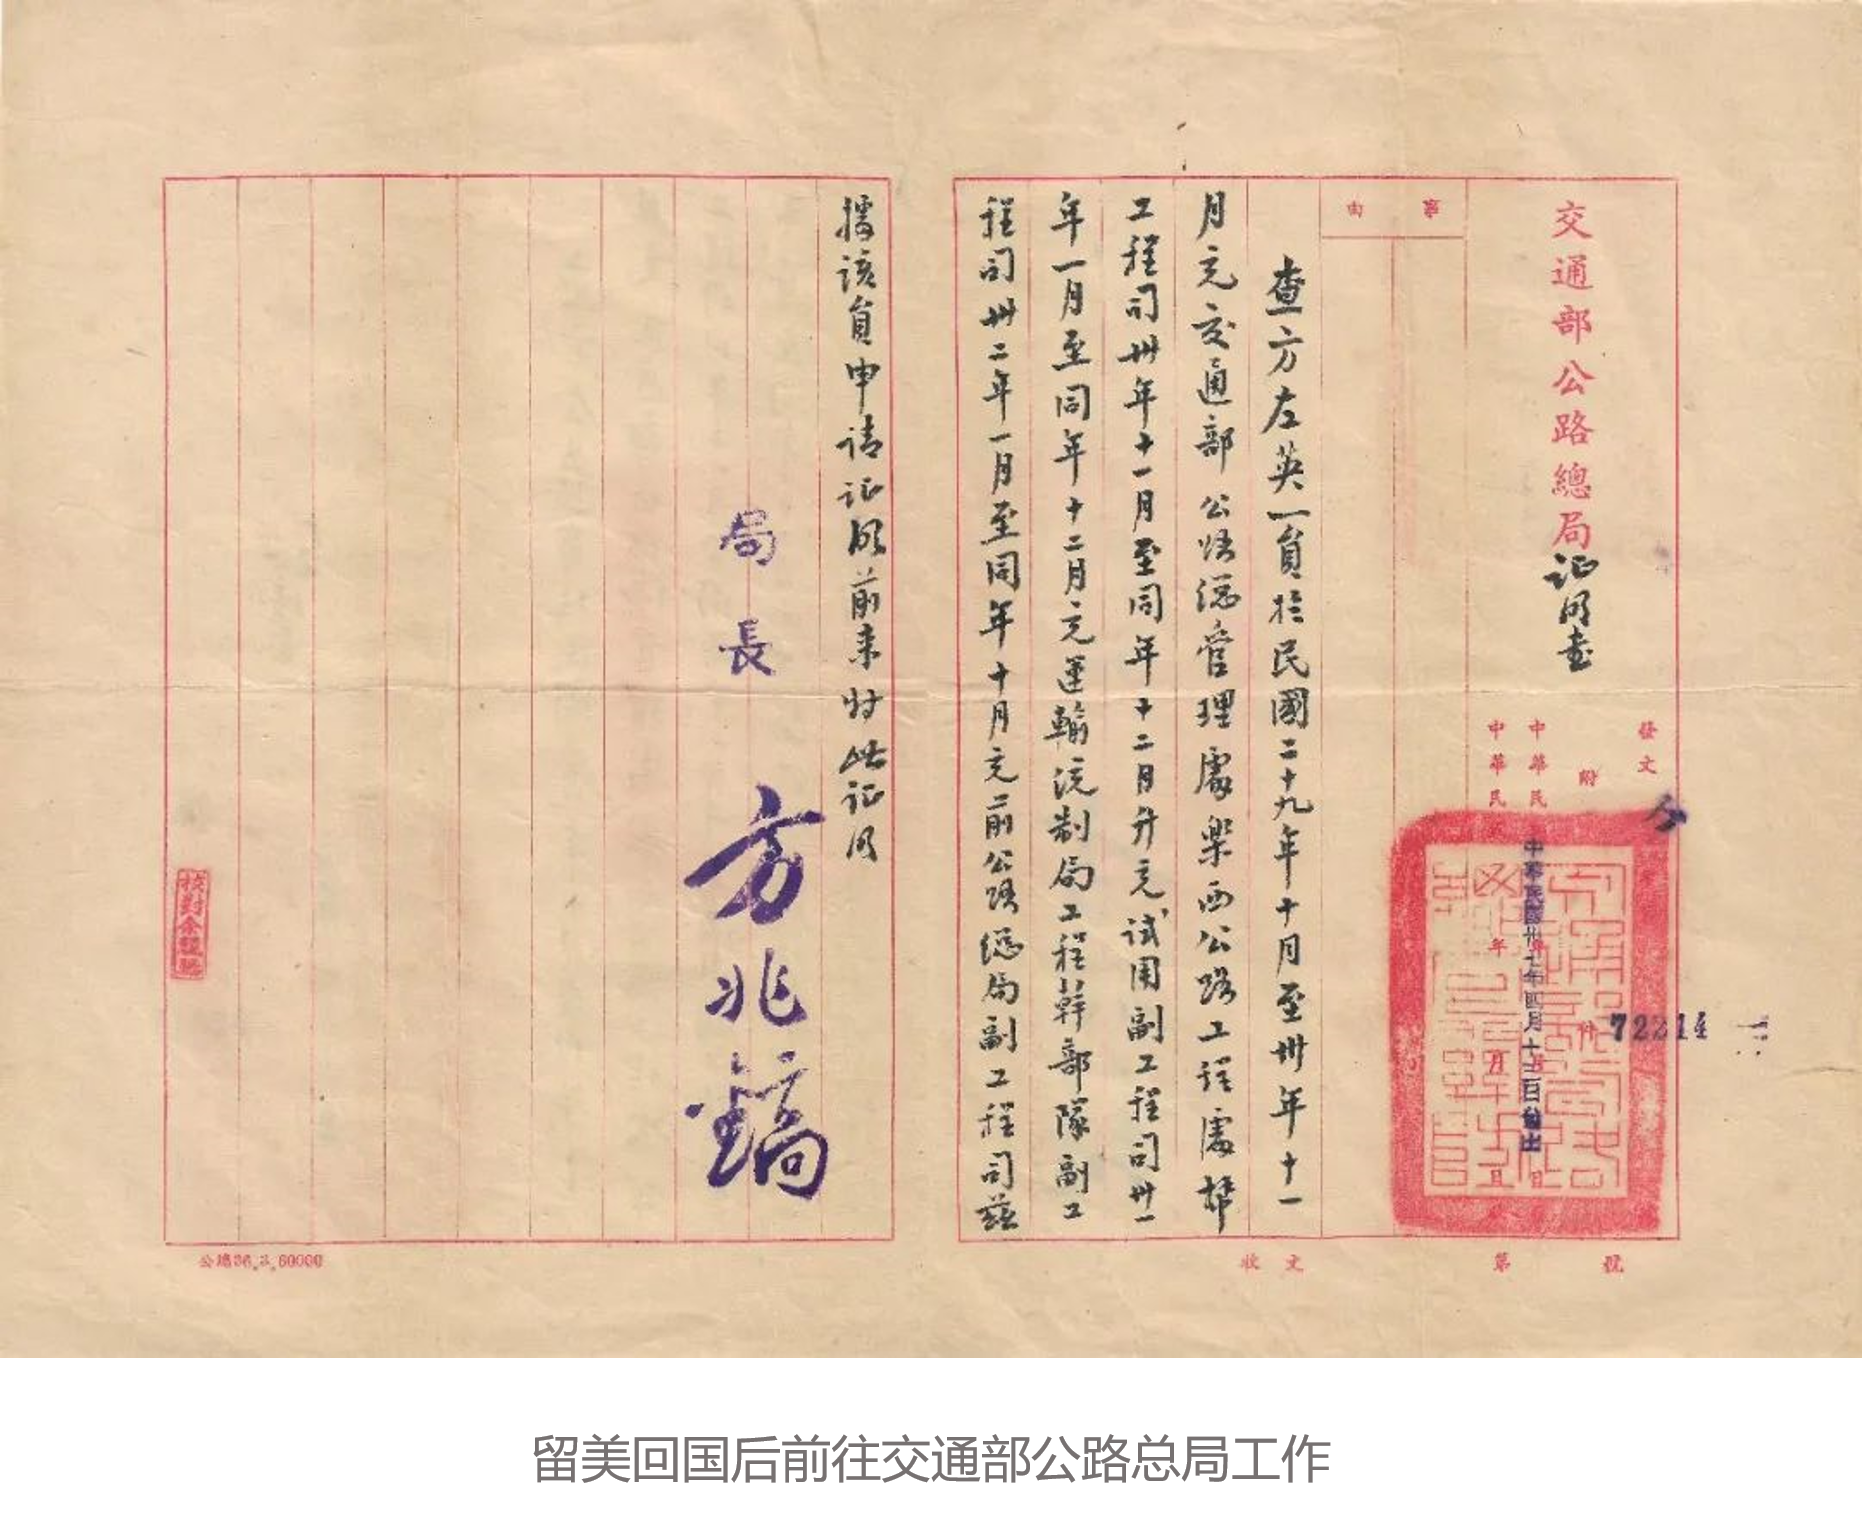 交通部公路總局证明書
事由
發文
附
件
中華民
年
月
日
中華民
年
月
日
72314
中華民國卅七年四月十三日發出
查方左英一員於民國二十九年十月至卅年十一
月充交通部公路總管理處樂西公路工程處幫
工程司卅年十一月至同年十二月升充試用副工程司卅一
年一月至同年十二月充運輸統制局工程幹部隊副工
程司卅二年一月至同年十月充前公路總局副工程司茲
據該員申请证明前来特此证明
局長 方兆鎬
收文
第
號
公總36.3.60000
留美回国后前往交通部公路总局工作